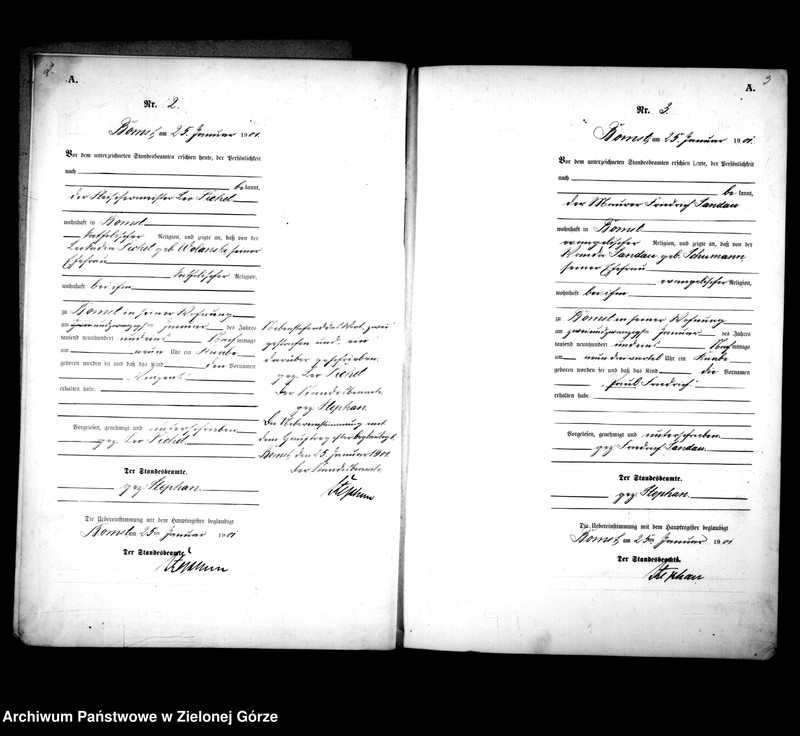 2.
A.
Nr. 2.
Bomst, am 25. Januar 1901.
Vor dem unterzeichneten Standesbeamten erschien heute, der Persönlichkeit
nach
bekannt,
der Fleischermeister Leo Pichet
wohnhaft in Bomst
katholischer Religion, und zeigte an, daß von der
Leokadia Pichet geb. Wolanska, seiner
Ehefrau
katholischer Religion,
wohnhaft bei ihm
zu Bomst in seiner Wohnung
am Januar des Jahres
tausend neunhundert und eins Nachmittags
um neun Uhr ein Knabe
geboren worden sei und daß das Kind den Vornamen
Vinzent
erhalten habe.
Vorgelesen, genehmigt und unterschrieben
gez. Leo Pichet
Der Standesbeamte.
gez. Stephan.
Die Uebereinstimmung mit dem Hauptregister beglaubigt
Bomst am 25ten Januar 1901
Der Standesbeamte.
Stephan
Nebenstehend das Wort „zwei“
gestrichen und ein
darüber geschrieben.
gez. Leo Pichet
Der Standesbeamte.
gez. Stephan.
Die Uebereinstimmung mit
dem Hauptregister beglaubigt.
Bomst, den 25. Januar 1901.
Der Standesbeamte.
Stephan
3
A.
Nr. 3.
Bomst, am 25. Januar 1901.
Vor dem unterzeichneten Standesbeamten erschien heute, der Persönlichkeit
nach
bekannt,
der Maurer Friedrich Sandau
wohnhaft in Bomst
evangelischer Religion, und zeigte an, daß von der
Wanda Sandau geb. Schumann
seiner Ehefrau
evangelischer Religion,
wohnhaft bei ihm
zu Bomst in seiner Wohnung
am zweiundzwanzigsten Januar des Jahres
tausend neunhundert und eins Nachmittags
um neun dreiviertel Uhr ein Knabe
geboren worden sei und daß das Kind die Vornamen
„Paul Friedrich“
erhalten habe.
Vorgelesen, genehmigt und unterschrieben
gez. Friedrich Sandau.
Der Standesbeamte.
gez. Stephan.
Die Uebereinstimmung mit dem Hauptregister beglaubigt
Bomst, am 25ten Januar 1901
Der Standesbeamte.
Stephan
Archiwum Państwowe w Zielonej Górze